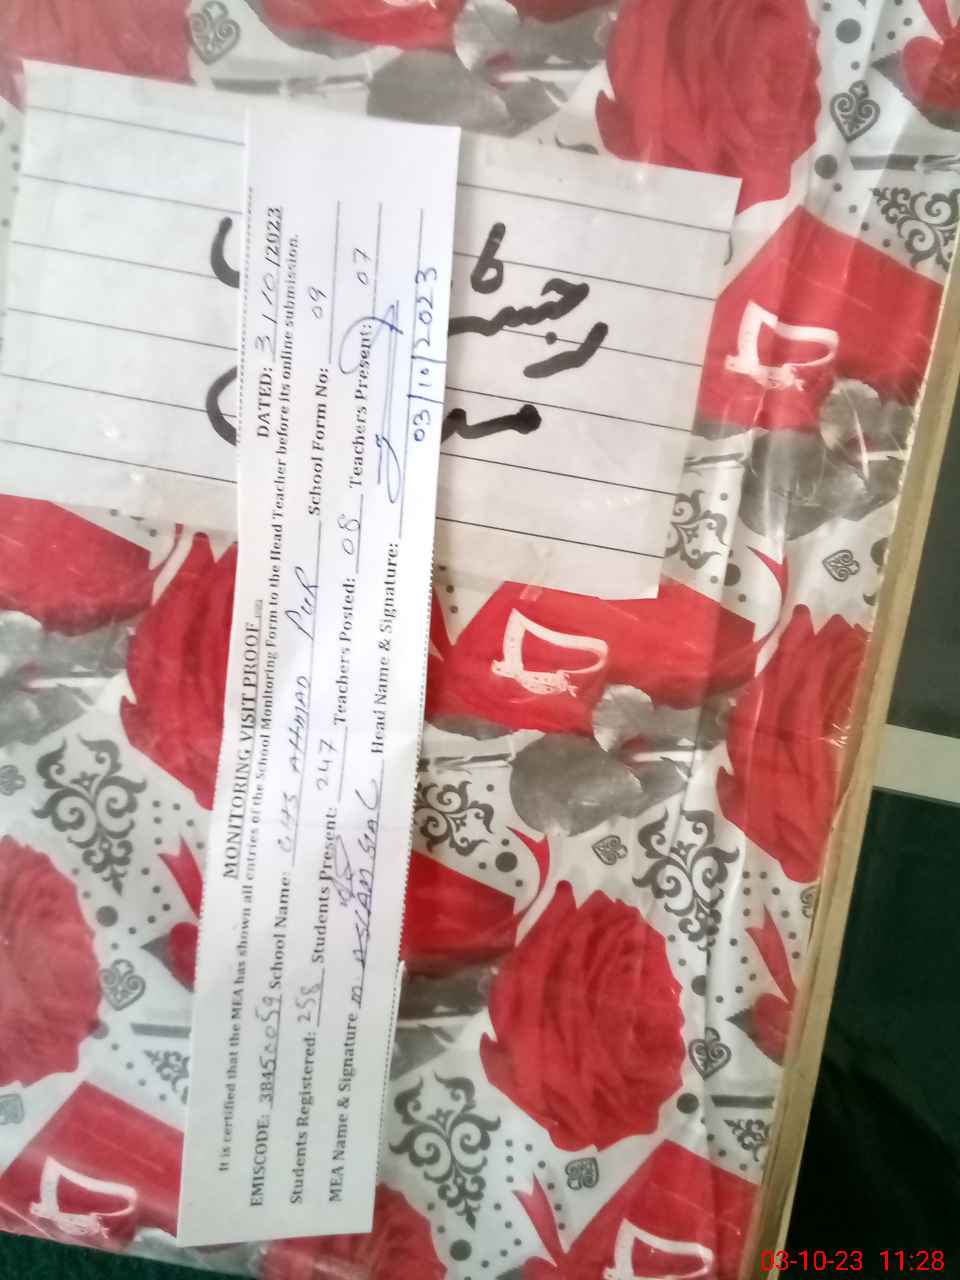 MONITORING VISIT PROOF
DATED: 3/10/2023
It is certified that the MEA has shown all entries of the School Monitoring Form to the Head Teacher before its online submission.
EMISCODE: 38450059 School Name: GHS AHMAD PUR School Form No: 09
Students Registered: 258 Students Present: 247 Teachers Posted: 08 Teachers Present: 07
MEA Name & Signature M ASLAM Head Name & Signature:
03/10/2023
رجسٹر
03-10-23 11:28